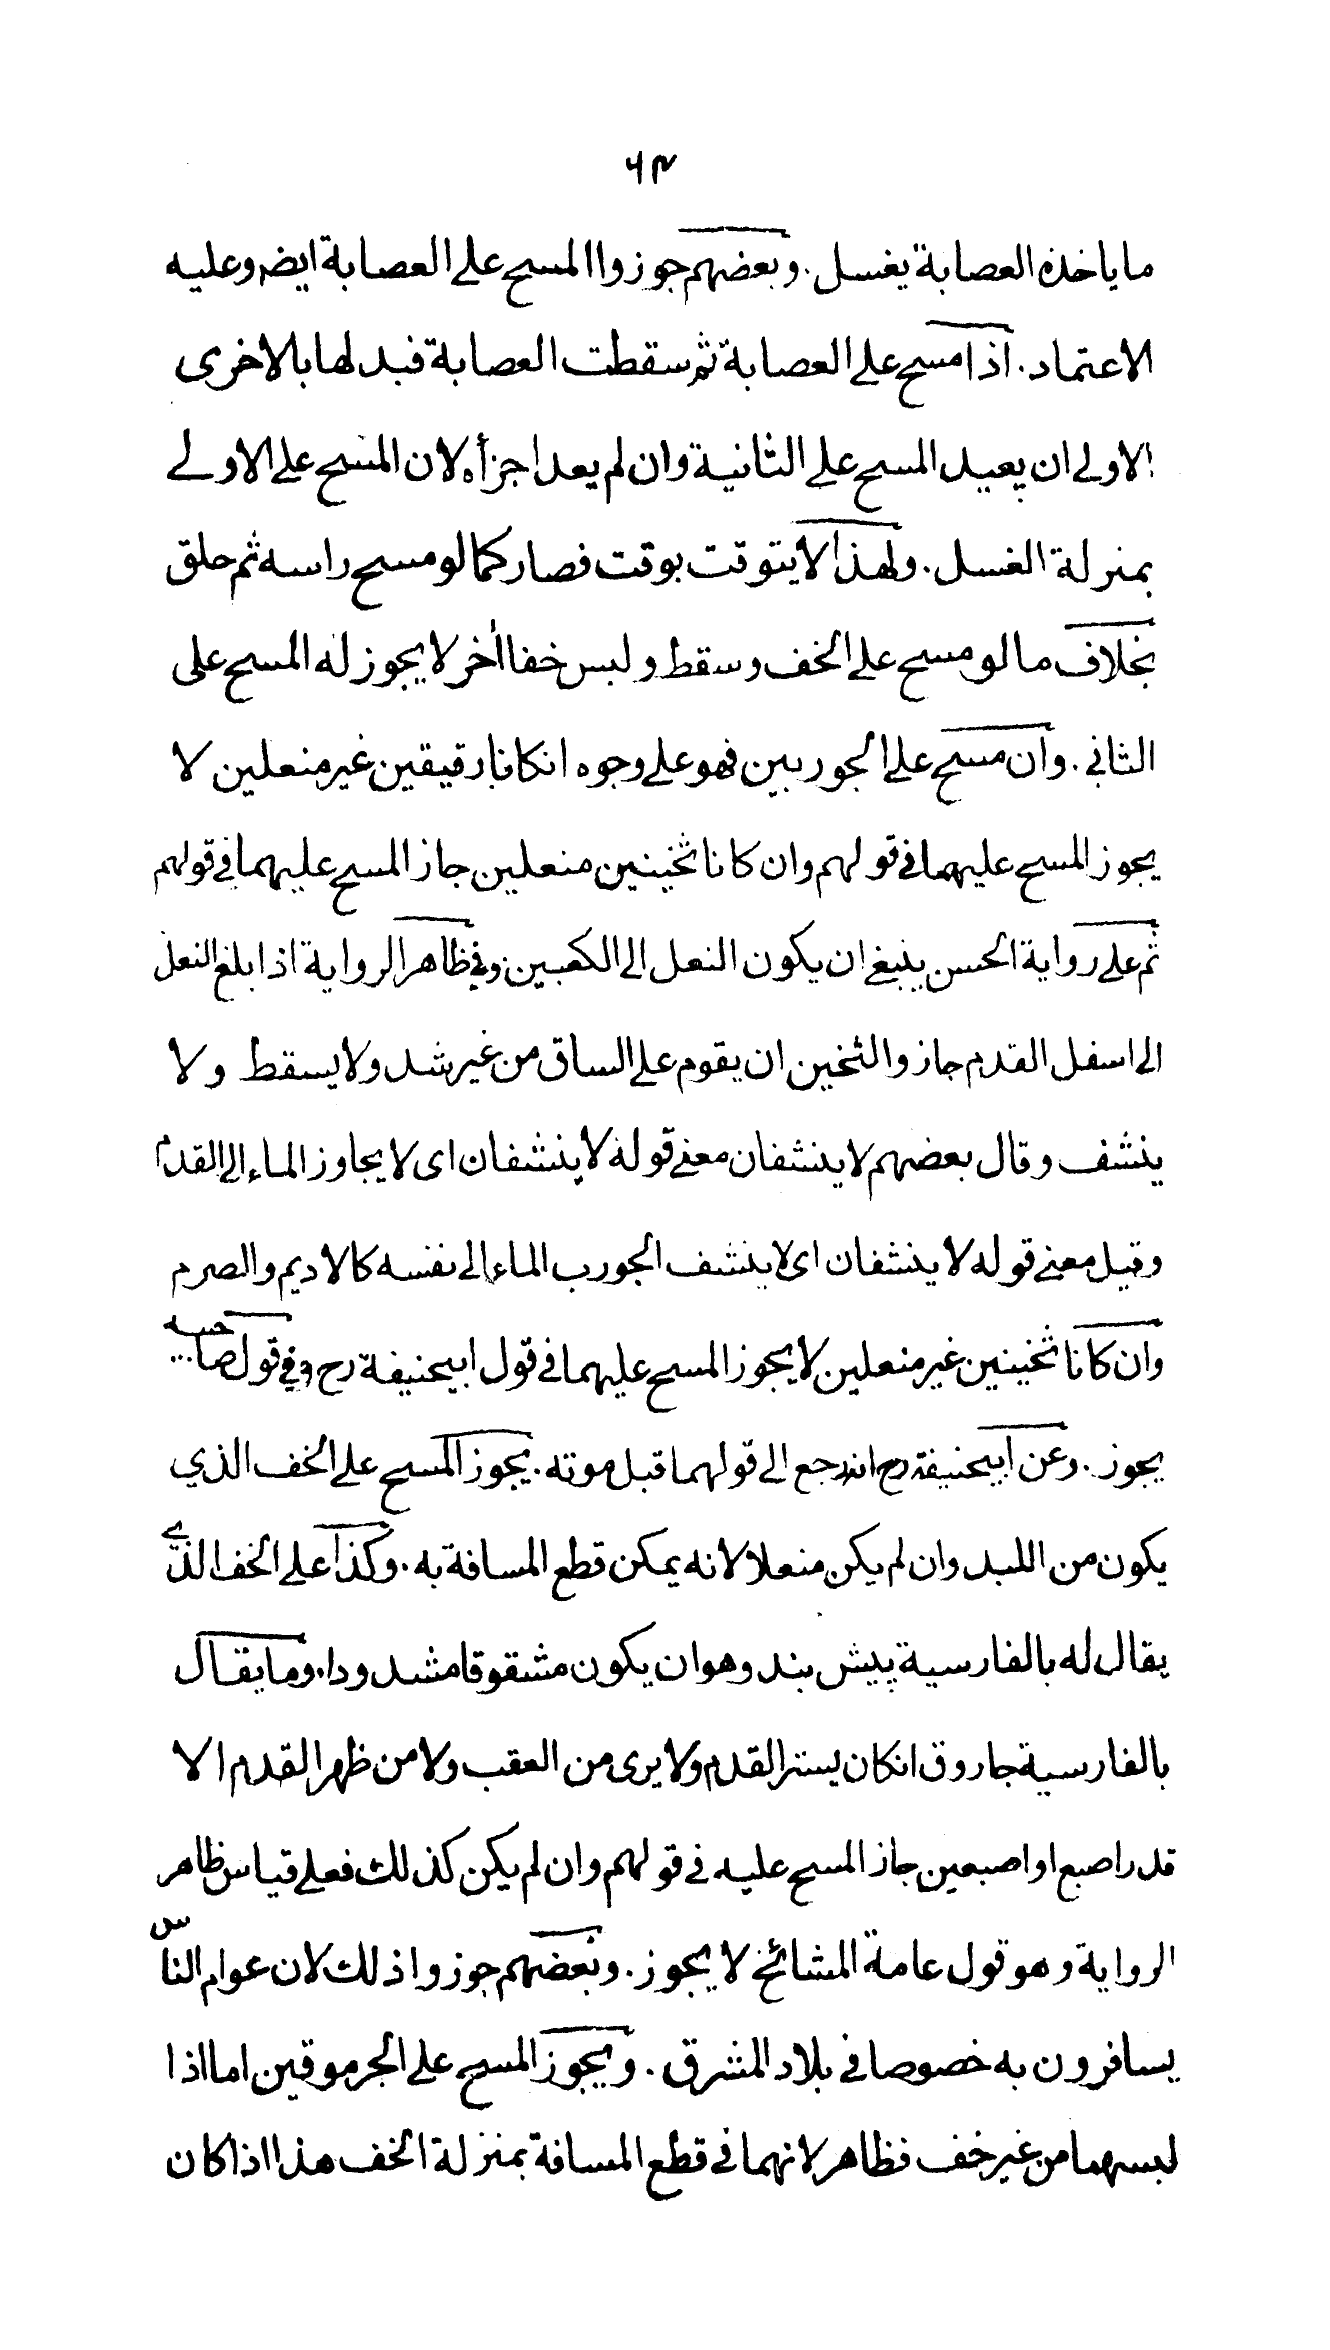 ٦٣
ما ياخذه العصابة يغسل . وبعضهم جوزوا المسح على العصابة ايضه وعليه
الاعتماد . اذا مسح على العصابة ثم سقطت العصابة فبد لها بالاخرى
الاولى ان يعيد المسح على الثانية وان لم يعد اجزأه لان المسح على الاولى
بمنزلة الغسل . ولهذا لا يتوقت بوقت فصار كما لو مسح راسه ثم حلق
بخلاف ما لو مسح على الخف وسقط ولبس خفا أخر لا يجوز له المسح على
الثاني . وان مسح على الجوربين فهو على وجوه انكانا رقيقين غير منعلين لا
يجوز المسح عليهما في قولهم وان كانا ثخينين منعلين جاز المسح عليهما في قولهم
ثم على رواية الحسن ينبغى ان يكون النعل الى الكعبين وفي ظاهر الرواية اذا بلغ النعل
الى اسفل القدم جاز والثخين ان يقوم على الساق من غير شد ولا يسقط ولا
ينشف وقال بعضهم لا ينشفان معنى قوله لا ينشفان اى لا يجاوز الماء الى القدم
وقيل معنى قوله لا ينشفان اى لا ينشف الجورب الماء الى نفسه كالاديم والصرم
وان كانا ثخينين غير منعلين لا يجوز المسح عليهما في قول ابيحنيفة رح وفي قول صاحبيه
يجوز . وعن ابيحنيفة رح انه رجع الى قولهما قبل موته . يجوز المسح على الخف الذي
يكون من اللبد وان لم يكن منعلا لانه يمكن قطع المسافة به . وكذا على الخف الذى
يقال له بالفارسية پيش بند وهو ان يكون مشقوقا مشدودا . وما يقال
بالفارسية جاروق انكان يستر القدم ولا يرى من العقب ولا من ظهر القدم الا
قدر اصبع او اصبعين جاز المسح عليه في قولهم وان لم يكن كذلك فعلى قياس ظاهر
الرواية وهو قول عامة المشائخ لا يجوز . وبعضهم جوزوا ذلك لان عوام الناس
يسافرون به خصوصا في بلاد المشرق . ويجوز المسح على الجرموقين اما اذا
لبسهما من غير خف فظاهر لانهما في قطع المسافة بمنزلة الخف هذا اذا كان